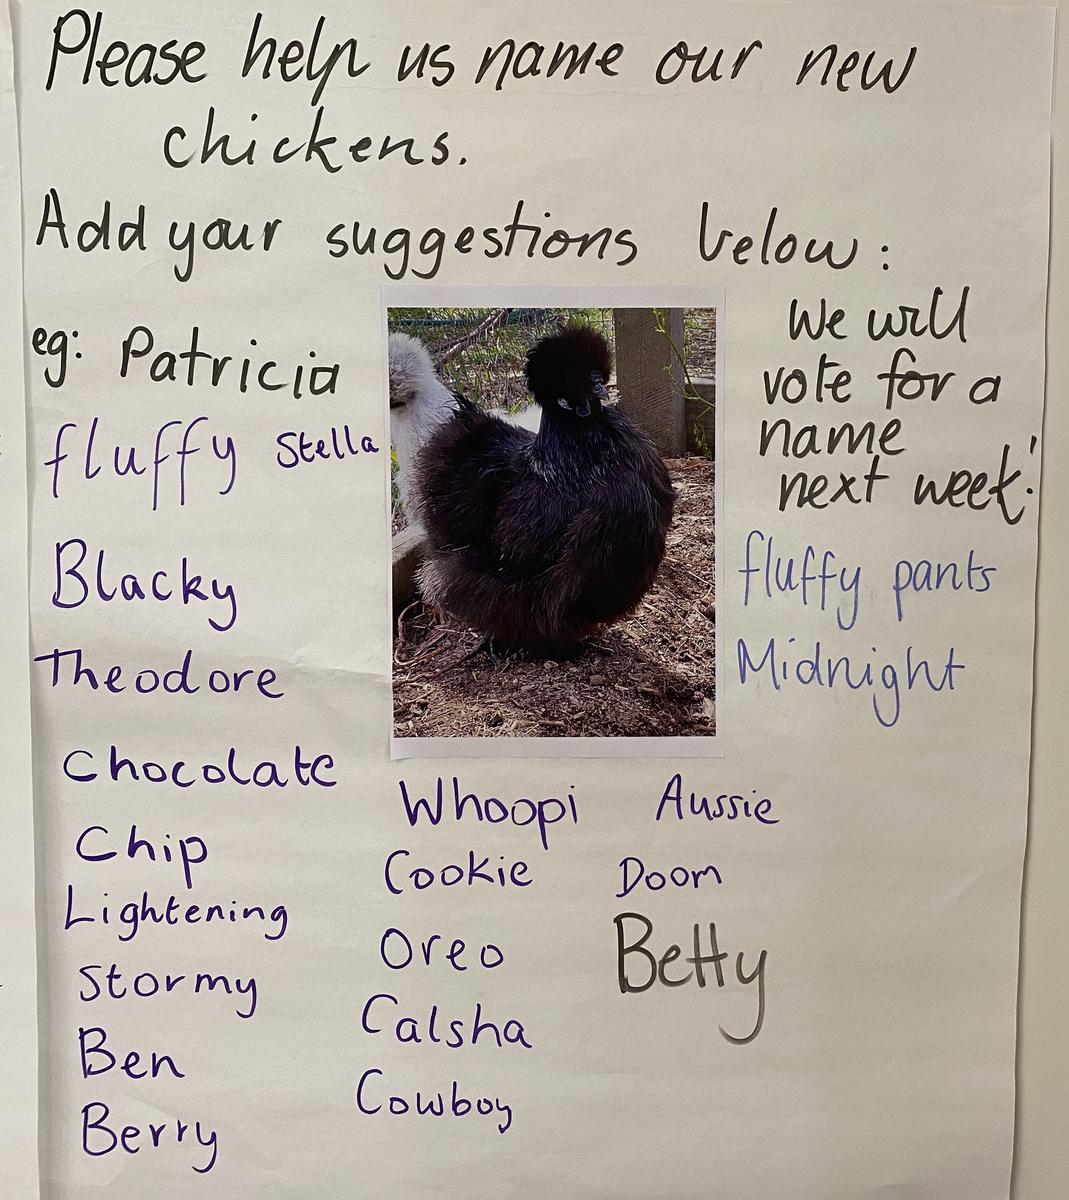 Please help us name our new
chickens.
Add your suggestions below:
eg: Patricia
We will
vote for a
name
next week!
fluffy Stella
Blacky
Theodore
Chocolate
Chip
Lightening
Stormy
Ben
Berry
Whoopi Aussie
Cookie Doom
Oreo Betty
Calsha
Cowboy
fluffy pants
Midnight